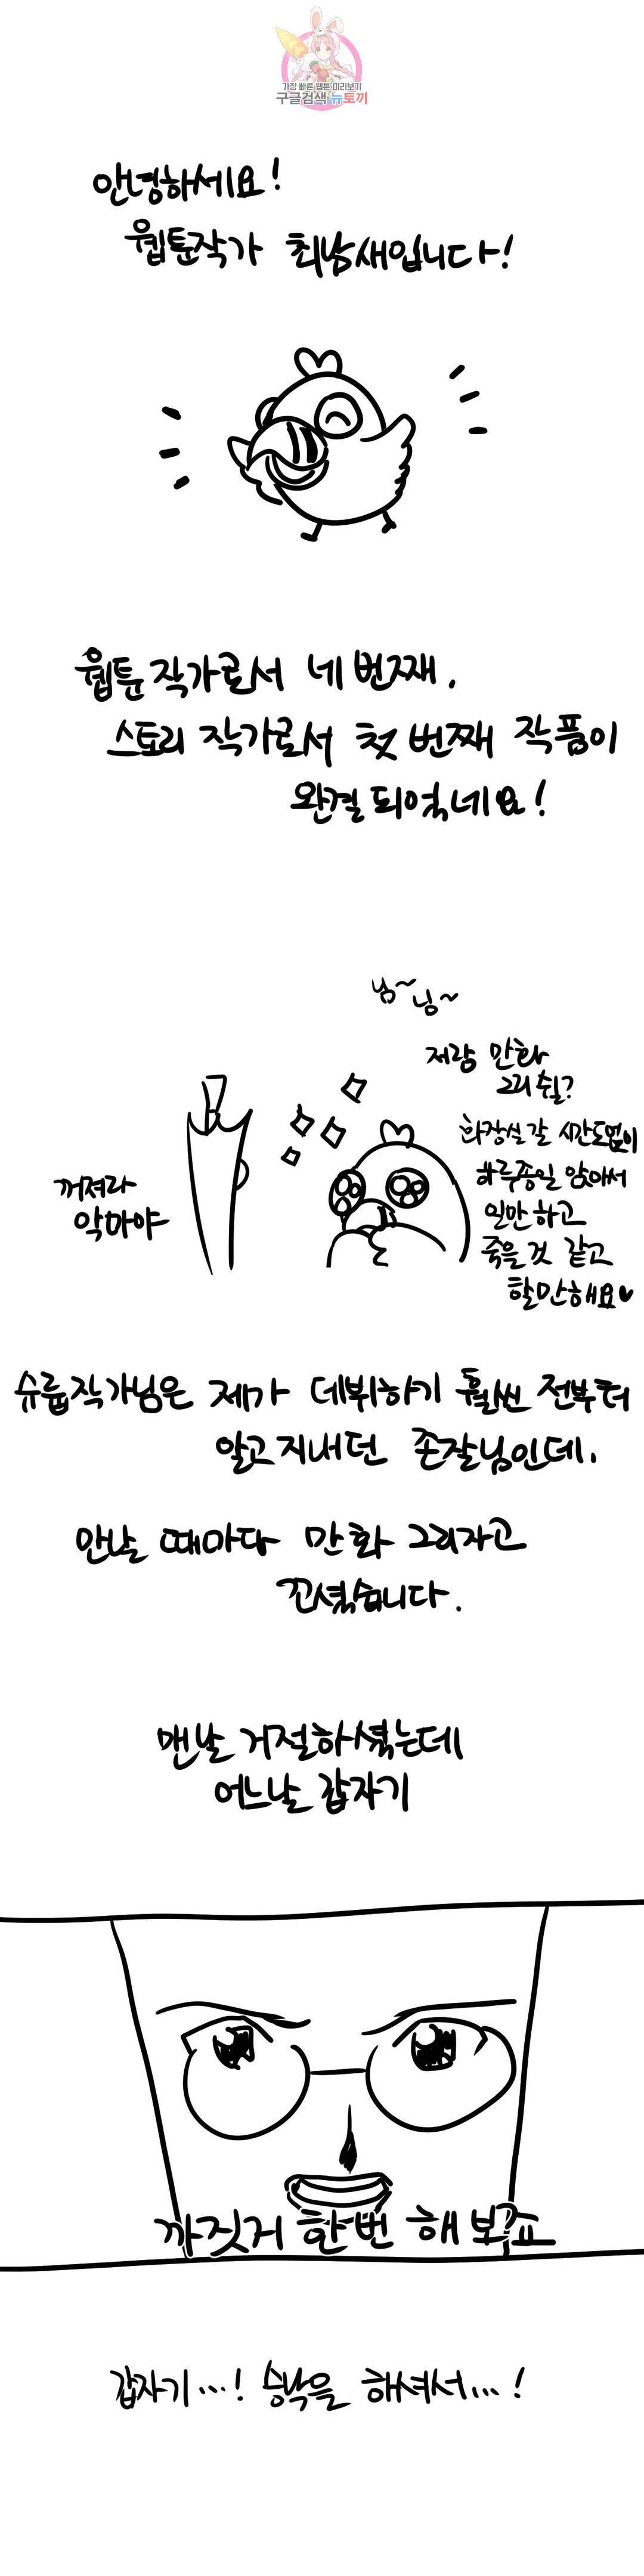 가장 빠른 웹툰 미리보기
구글검색 뉴토끼
안녕하세요!
웹툰작가 최남새입니다!
웹툰 작가로서 네 번째.
스토리 작가로서 첫 번째 작품이
완결되었네요!
님~님~
저랑 만화
그리쉴?
화장실 갈 시간도 없이
하루종일 앉아서
일만 하고
죽을 것 같고
할만해요♥
꺼져라
악마야
슈룹작가님은 제가 데뷔하기 훨씬 전부터
알고 지내던 존잘님인데.
만날 때마다 만화 그리자고
꼬셨습니다.
맨날 거절하셨는데
어느날 갑자기
까짓거 한번 해보죠
갑자기...! 승낙을 해셔서...!